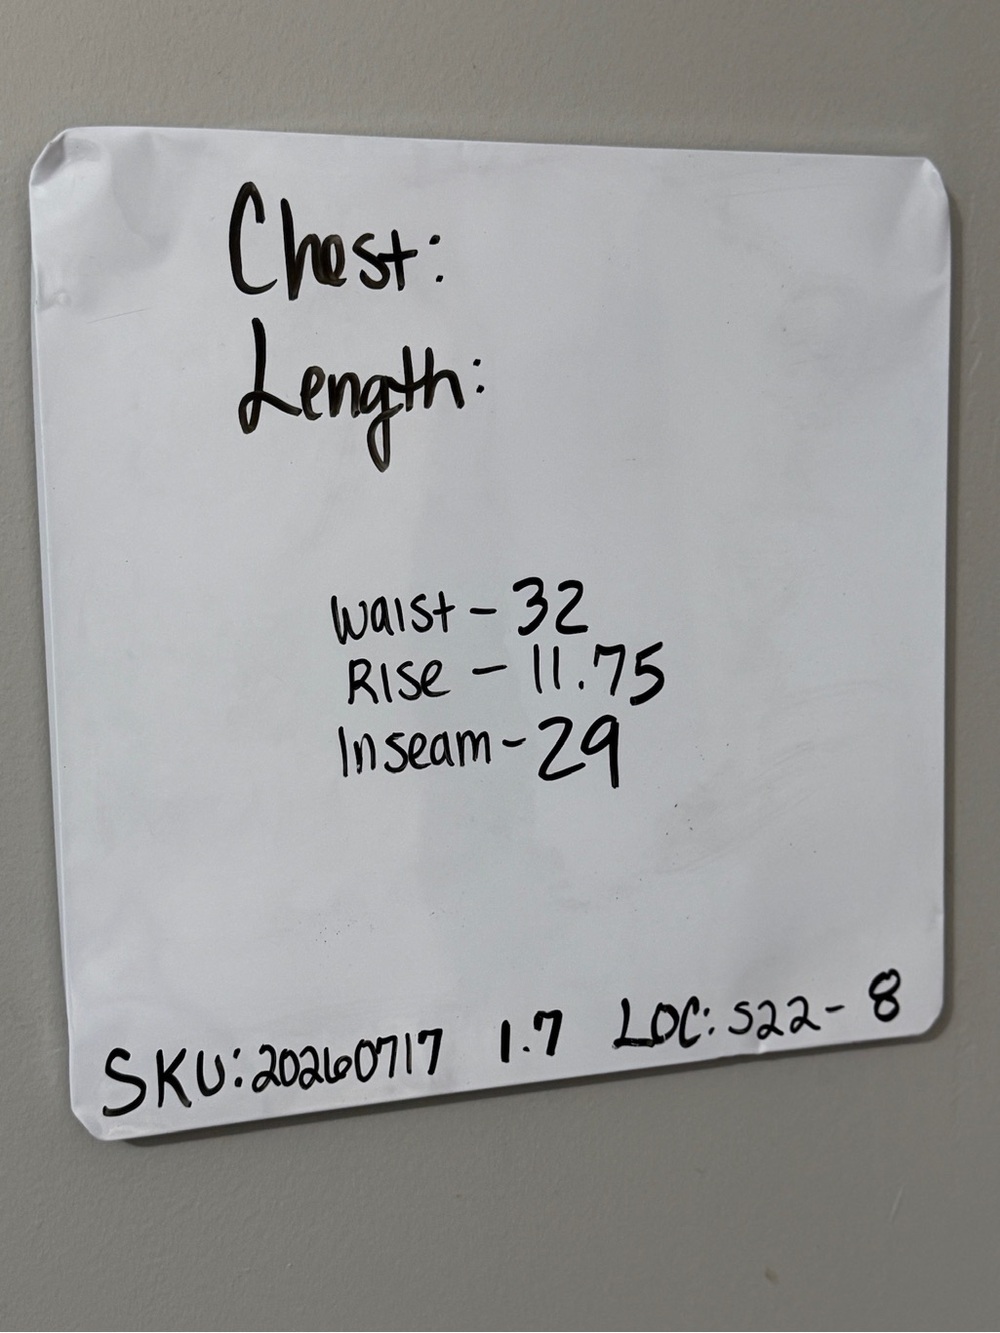 Chest:
Length:
Waist - 32
Rise - 11.75
Inseam - 29
SKU: 20260717 1.7 LOC: S22- 8